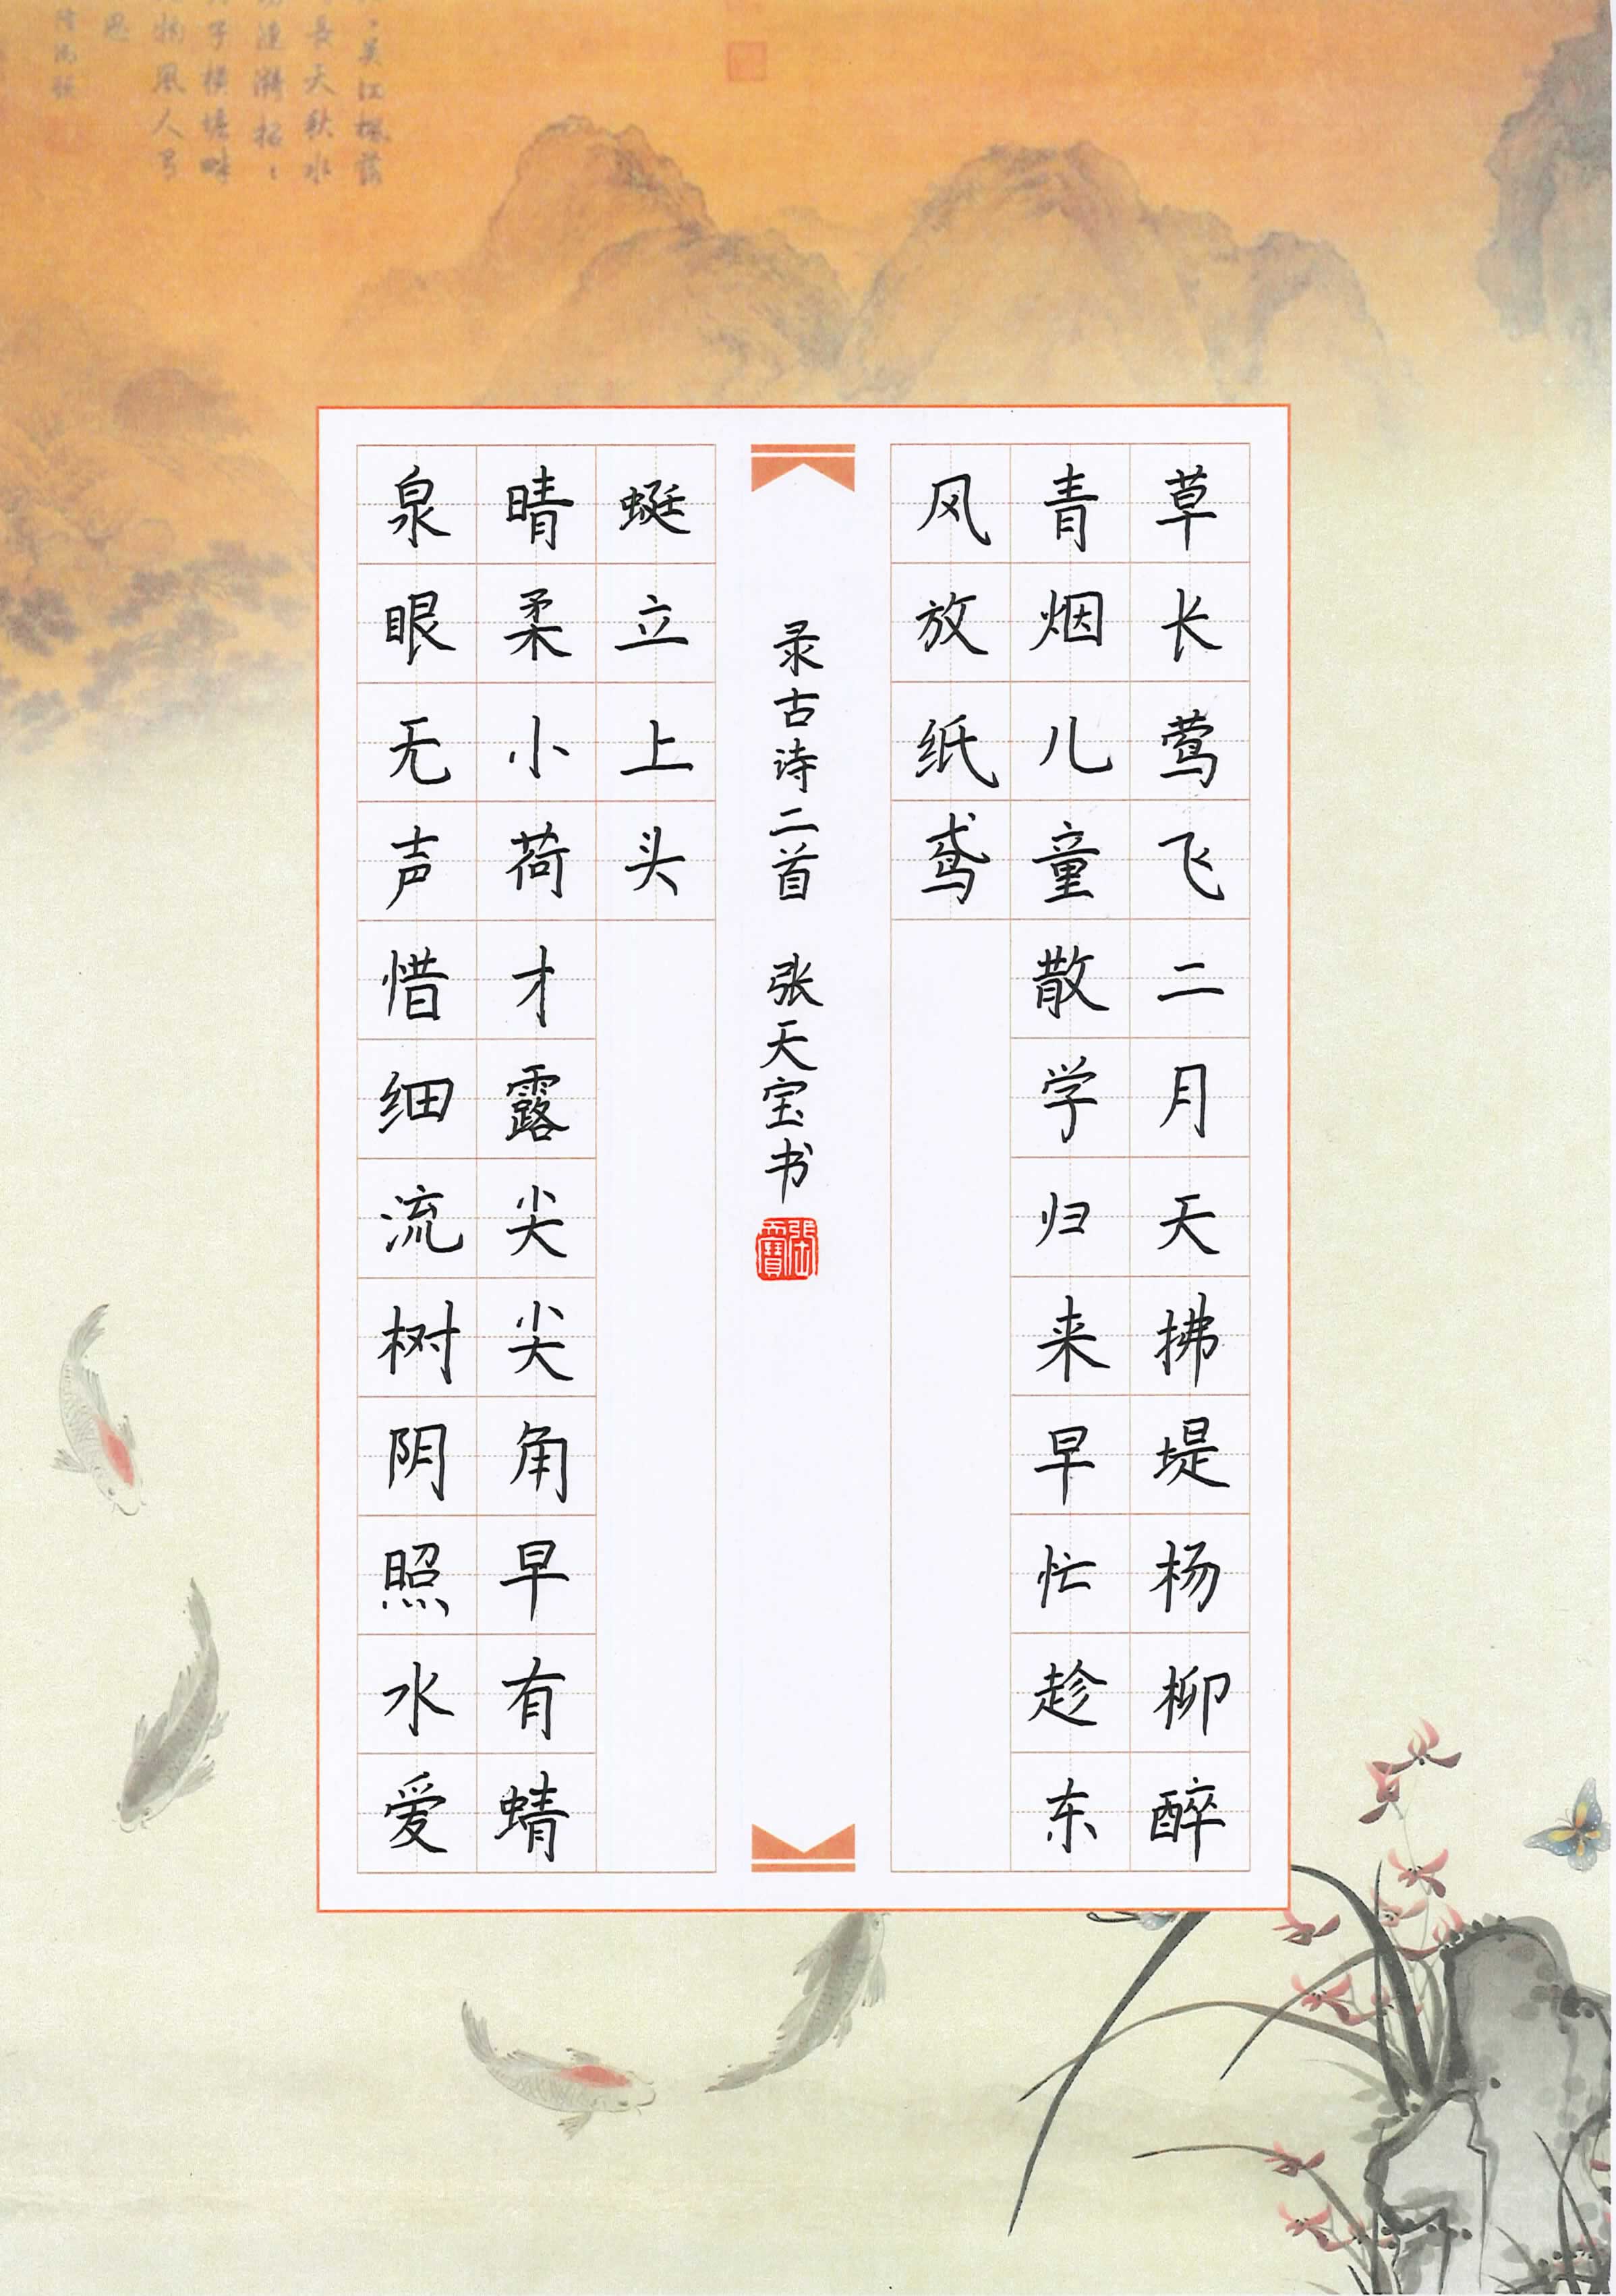 草长莺飞二月天拂堤杨柳醉
青烟儿童散学归来早忙趁东
风放纸鸢
泉眼无声惜细流树阴照水爱
晴柔小荷才露尖尖角早有蜻
蜓立上头
录古诗二首 张天宝书